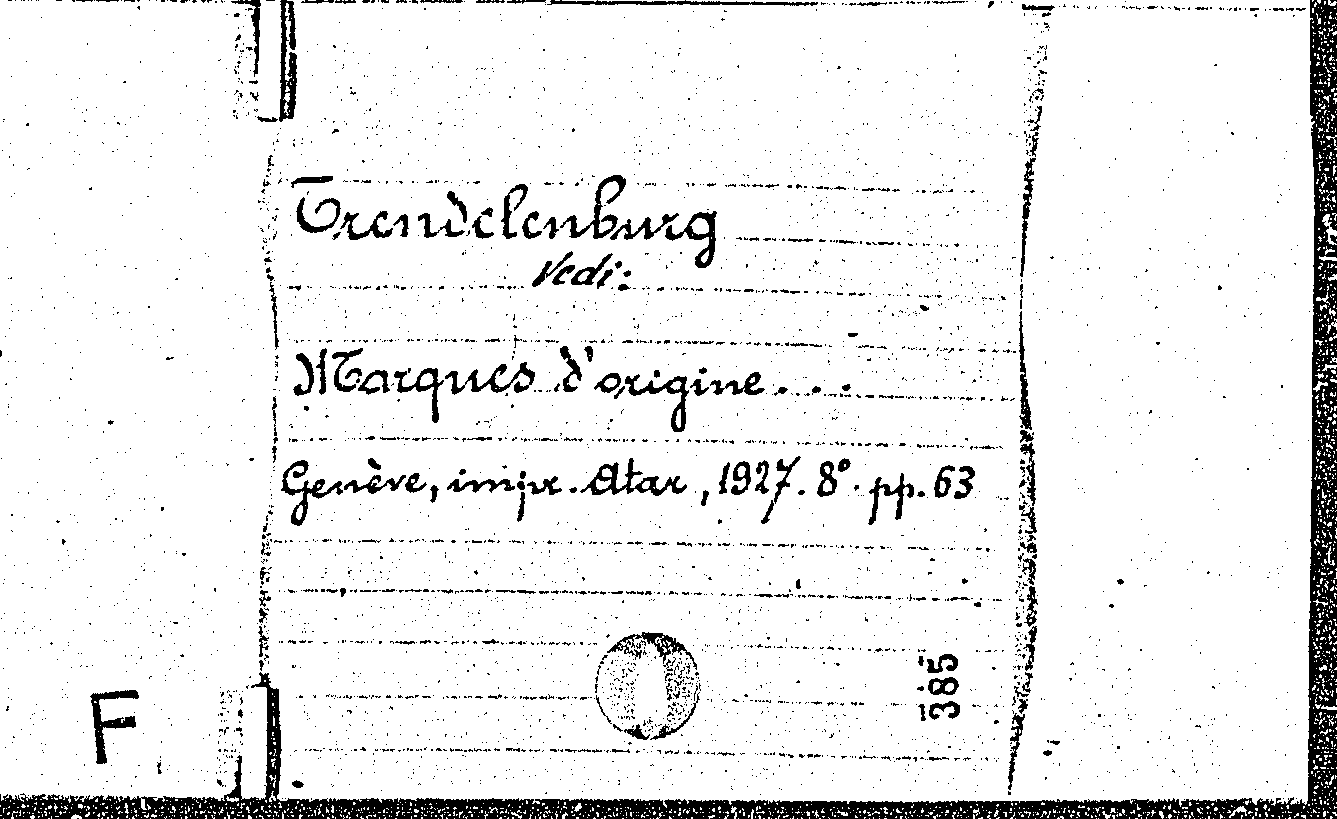 Trendelenburg
Vedi:
Marques d'origine...
Genève, impr. Atar, 1927. 8°. pp. 63
385
F